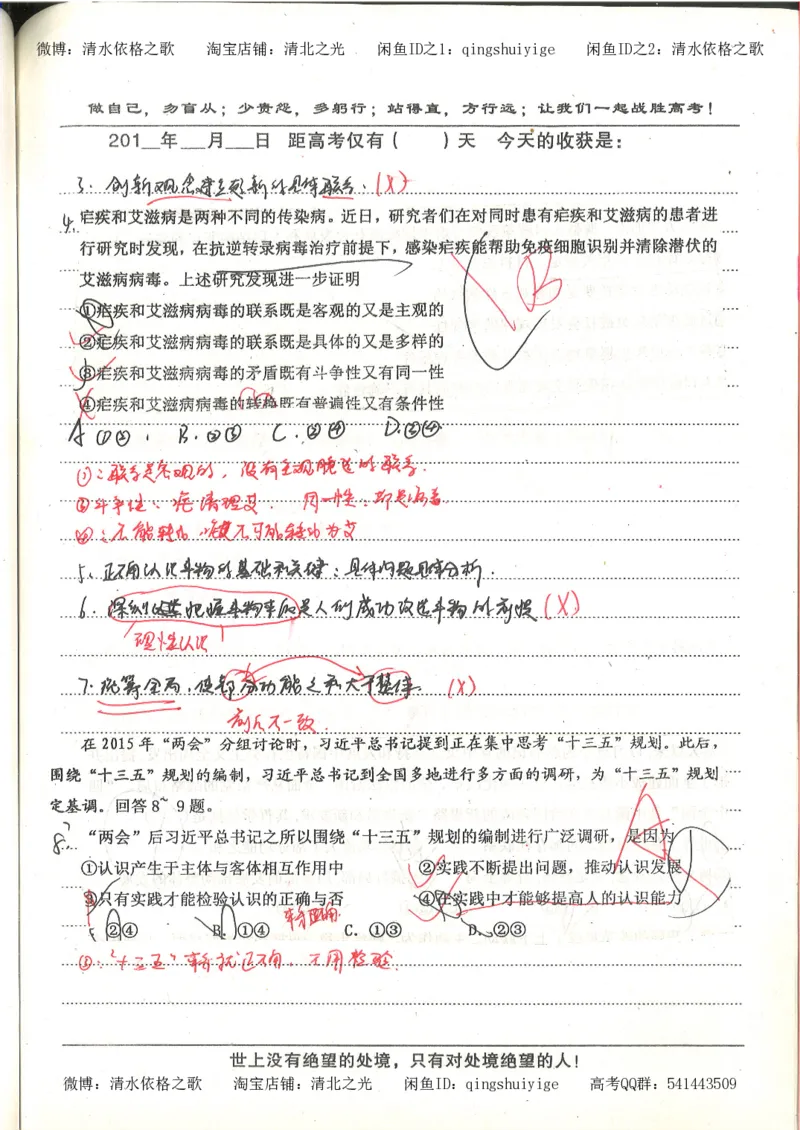 微博：清水依格之歌 淘宝店铺：清北之光 闲鱼ID之1：qingshuiyige 闲鱼ID之2：清水依格之歌
做自己，勿盲从；少责怨，多躬行；站得直，方行远；让我们一起战胜高考！
201__年___月___日 距高考仅有（ ）天 今天的收获是：
3、创新观念建立新的具体联系.(X)
4. 疟疾和艾滋病是两种不同的传染病。近日，研究者们在对同时患有疟疾和艾滋病的患者进
行研究时发现，在抗逆转录病毒治疗前提下，感染疟疾能帮助免疫细胞识别并清除潜伏的
艾滋病病毒。上述研究发现进一步证明
B
①疟疾和艾滋病病毒的联系既是客观的又是主观的
②疟疾和艾滋病病毒的联系既是具体的又是多样的
③疟疾和艾滋病病毒的矛盾既有斗争性又有同一性
④疟疾和艾滋病病毒的转换既有普遍性又有条件性
A ①② . B.②③ C.①④ D.③④
①：联系是客观的，没有主观随意的联系.
③斗争性：疟清理艾. 同一性：都是病毒
④：不能转化，疟不可能转功为艾
5、正确认识事物的基础和关键：具体问题具体分析.
6、深刻把握事物本质是人们成功改造事物的前提 (X)
理性认识
7.统筹全局，使部分功能之和大于整体. (X)
前后不一致.
在2015年“两会”分组讨论时，习近平总书记提到正在集中思考“十三五”规划。此后，
围绕“十三五”规划的编制，习近平总书记到全国多地进行多方面的调研，为“十三五”规划
定基调。回答8~9题。
8. “两会”后习近平总书记之所以围绕“十三五”规划的编制进行广泛调研，是因为
A
①认识产生于主体与客体相互作用中 ②实践不断提出问题，推动认识发展
③只有实践才能检验认识的正确与否 ④在实践中才能够提高人的认识能力
A. ②④ B. ①④ C. ①③ D. ②③
③：“十三五”本就正确，不用检验.
世上没有绝望的处境，只有对处境绝望的人！
微博：清水依格之歌 淘宝店铺：清北之光 闲鱼ID：qingshuiyige 高考QQ群：541443509